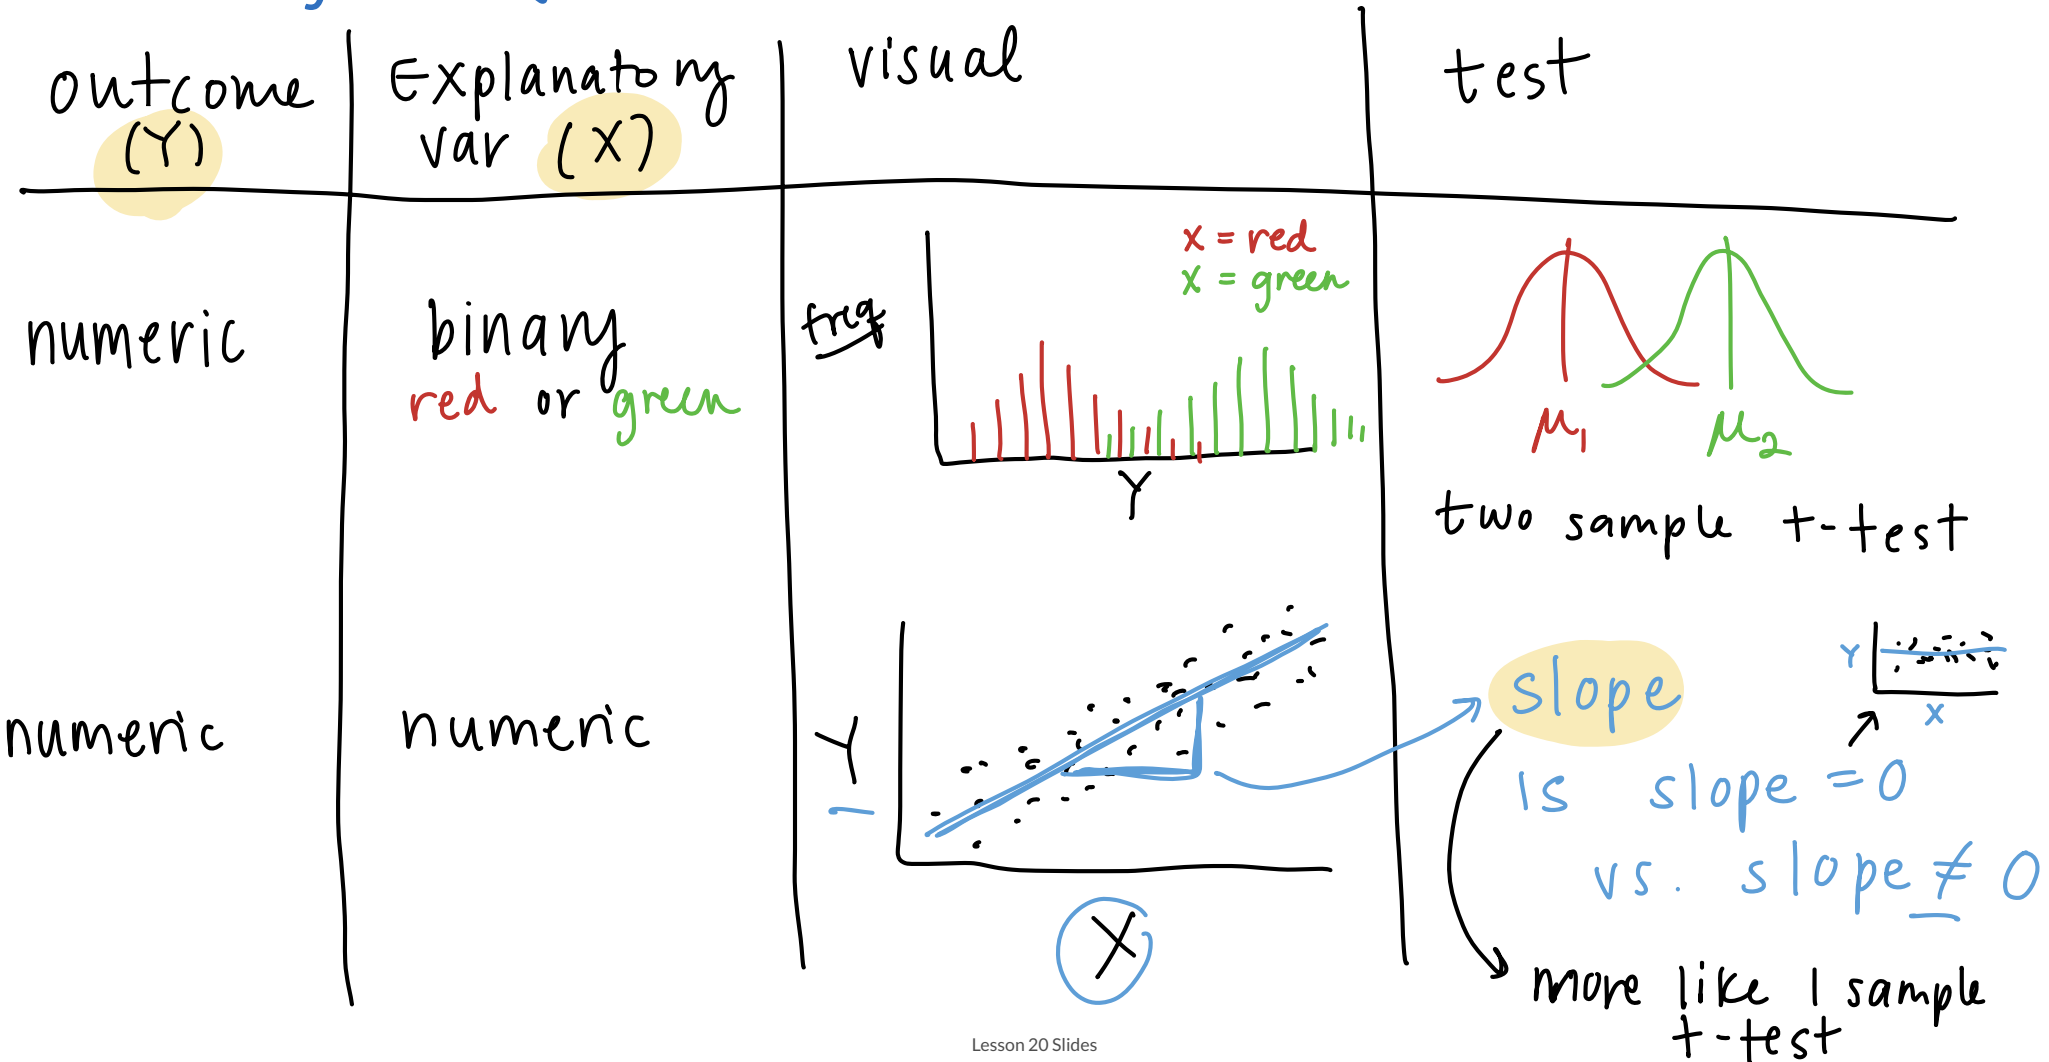 outcome
(Y)
Explanatory
var (X)
visual
test
numeric
binary
red or green
freq
x = red
x = green
Y
μ1
μ2
two sample t-test
numeric
numeric
Y
X
slope
Y
X
is slope = 0
vs. slope ≠ 0
more like 1 sample
t-test
Lesson 20 Slides